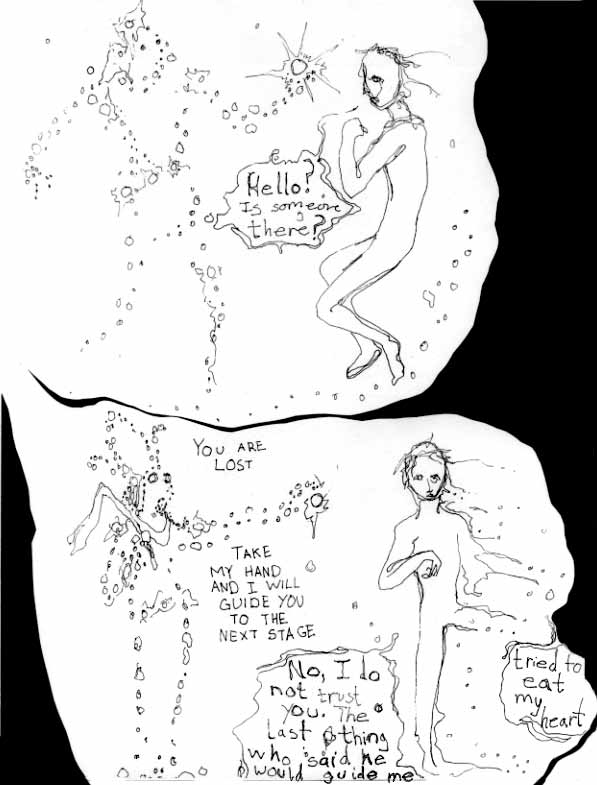 Hello?
Is someone
there?
YOU ARE
LOST
TAKE
MY HAND
AND I WILL
GUIDE YOU
TO THE
NEXT STAGE
No, I do
not trust
you. The
last thing
who said he
would guide me
tried to
eat
my
heart